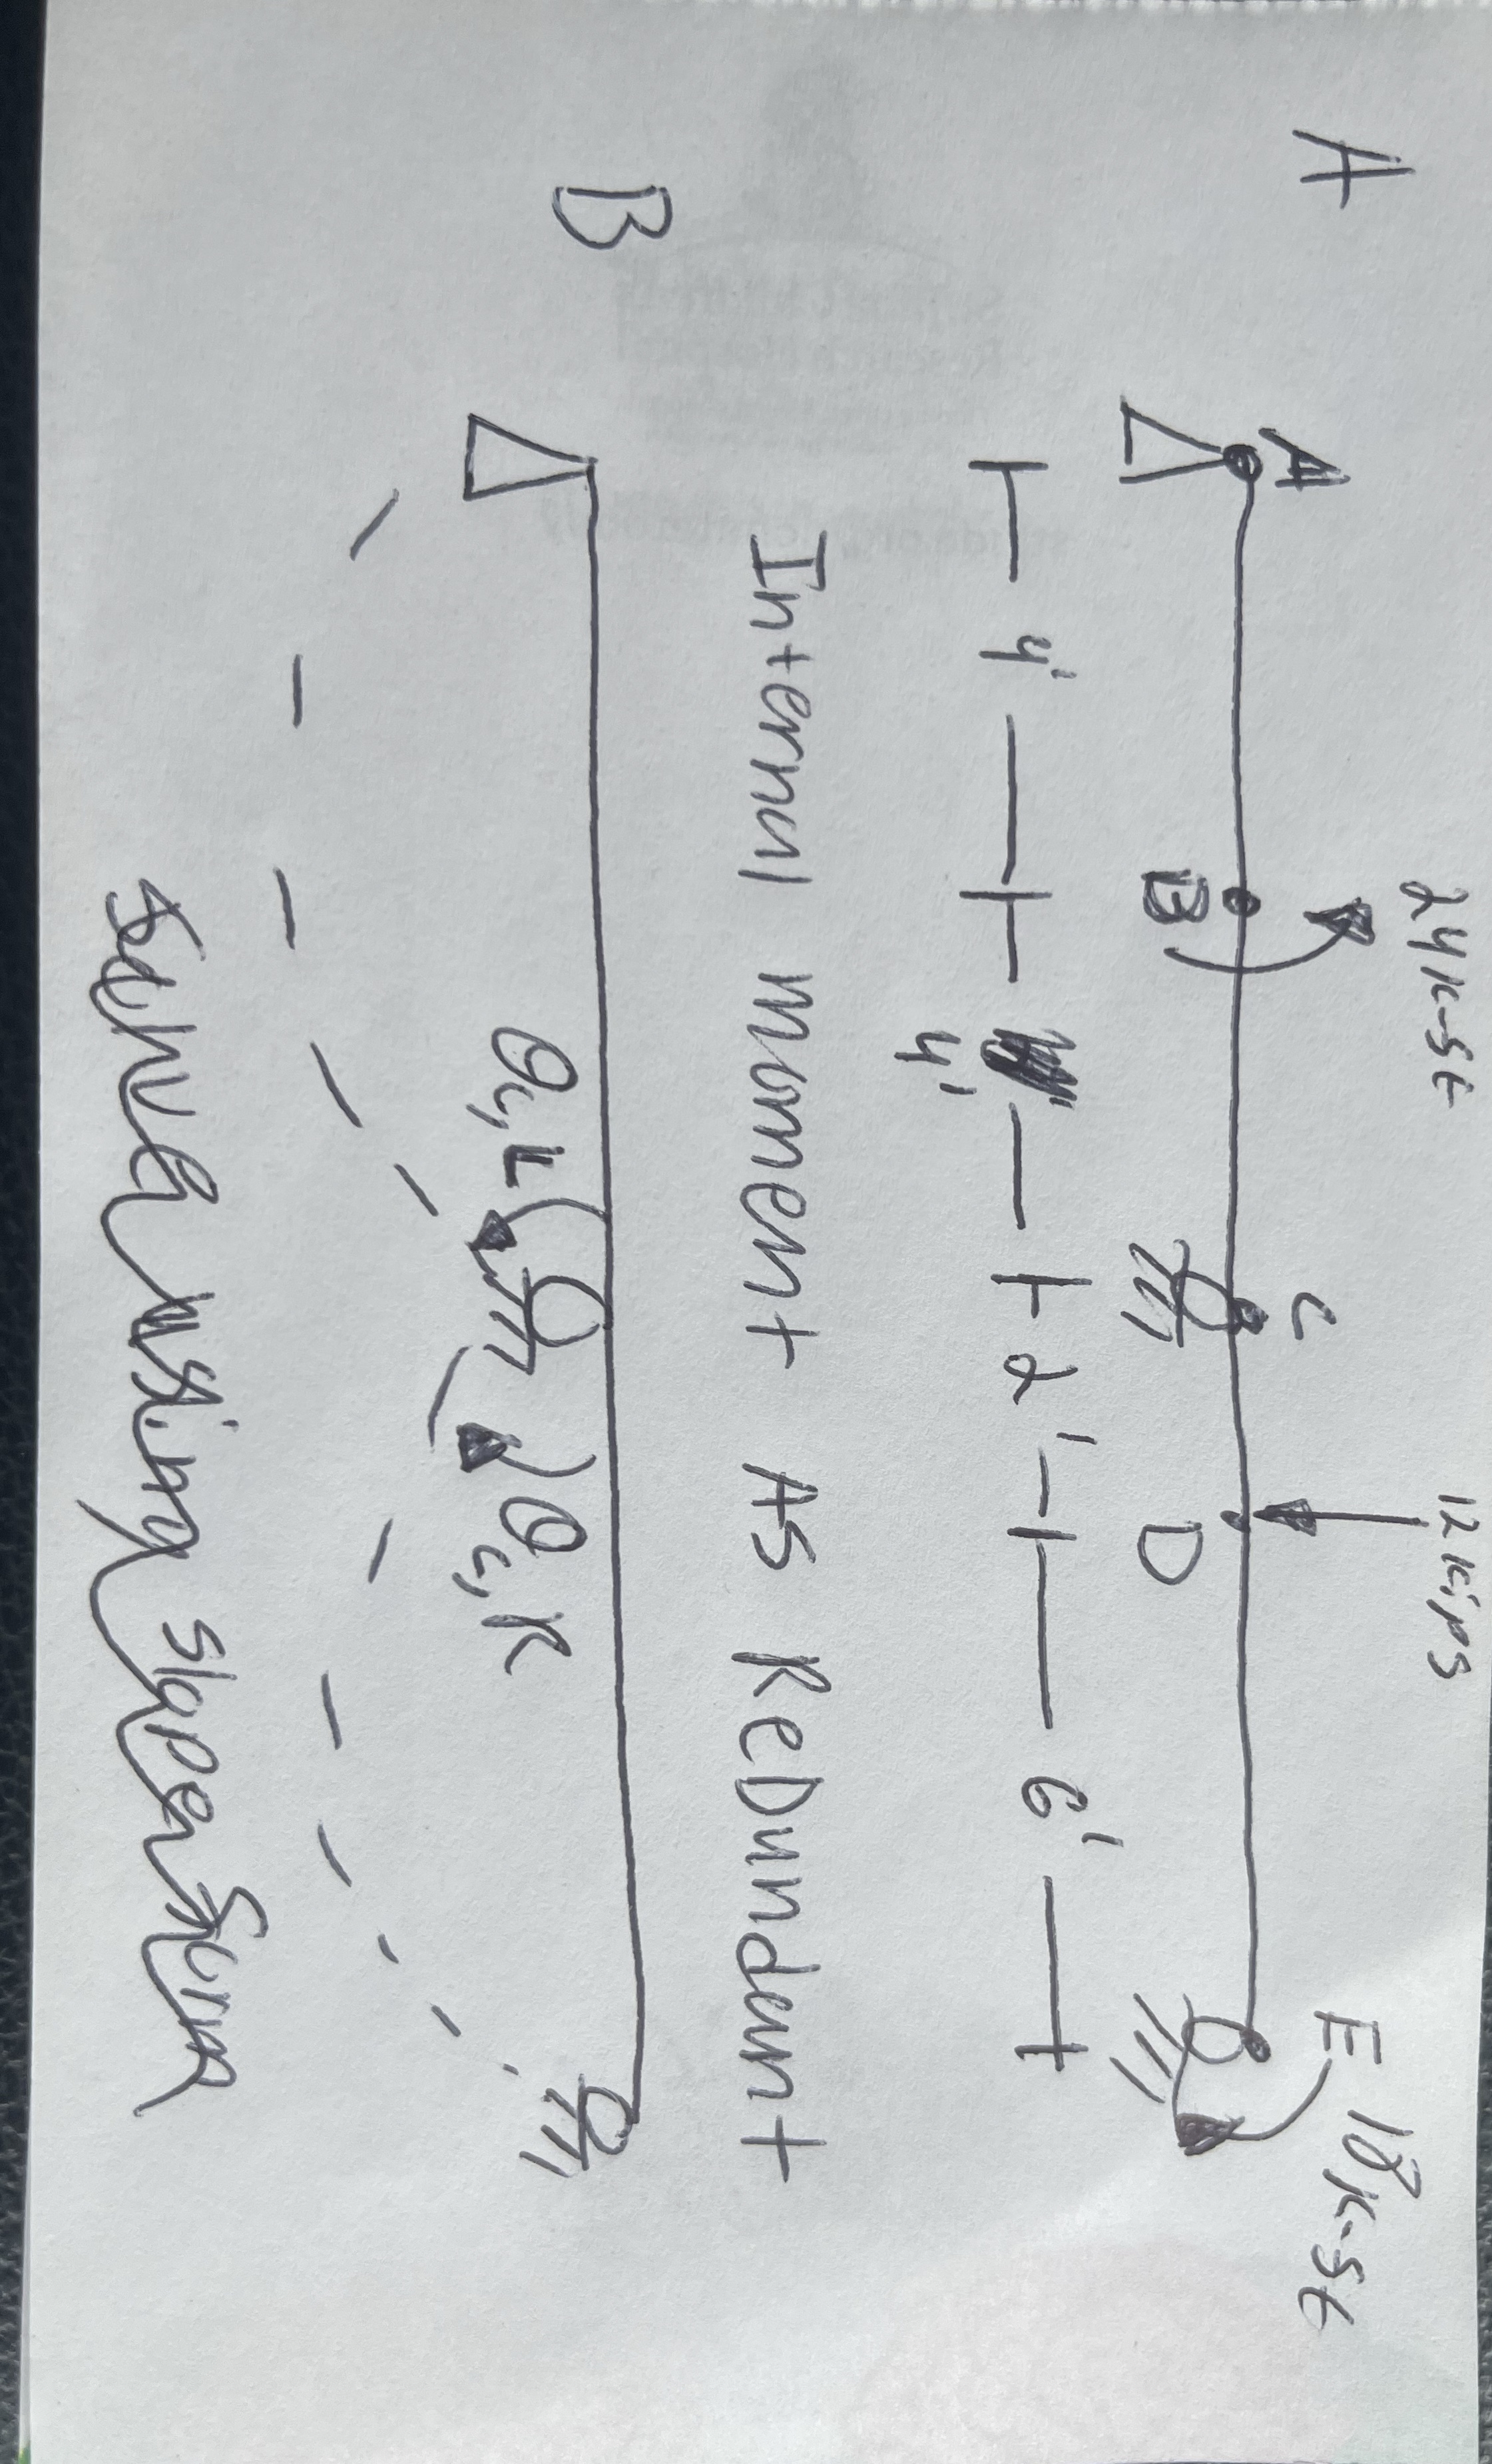 A
24k-ft 12kips
A C E 18k-ft
B D
4' 2' 6'
4'
Internal moment As ReDundant
B
θc,L θc,R
Solve using slope form